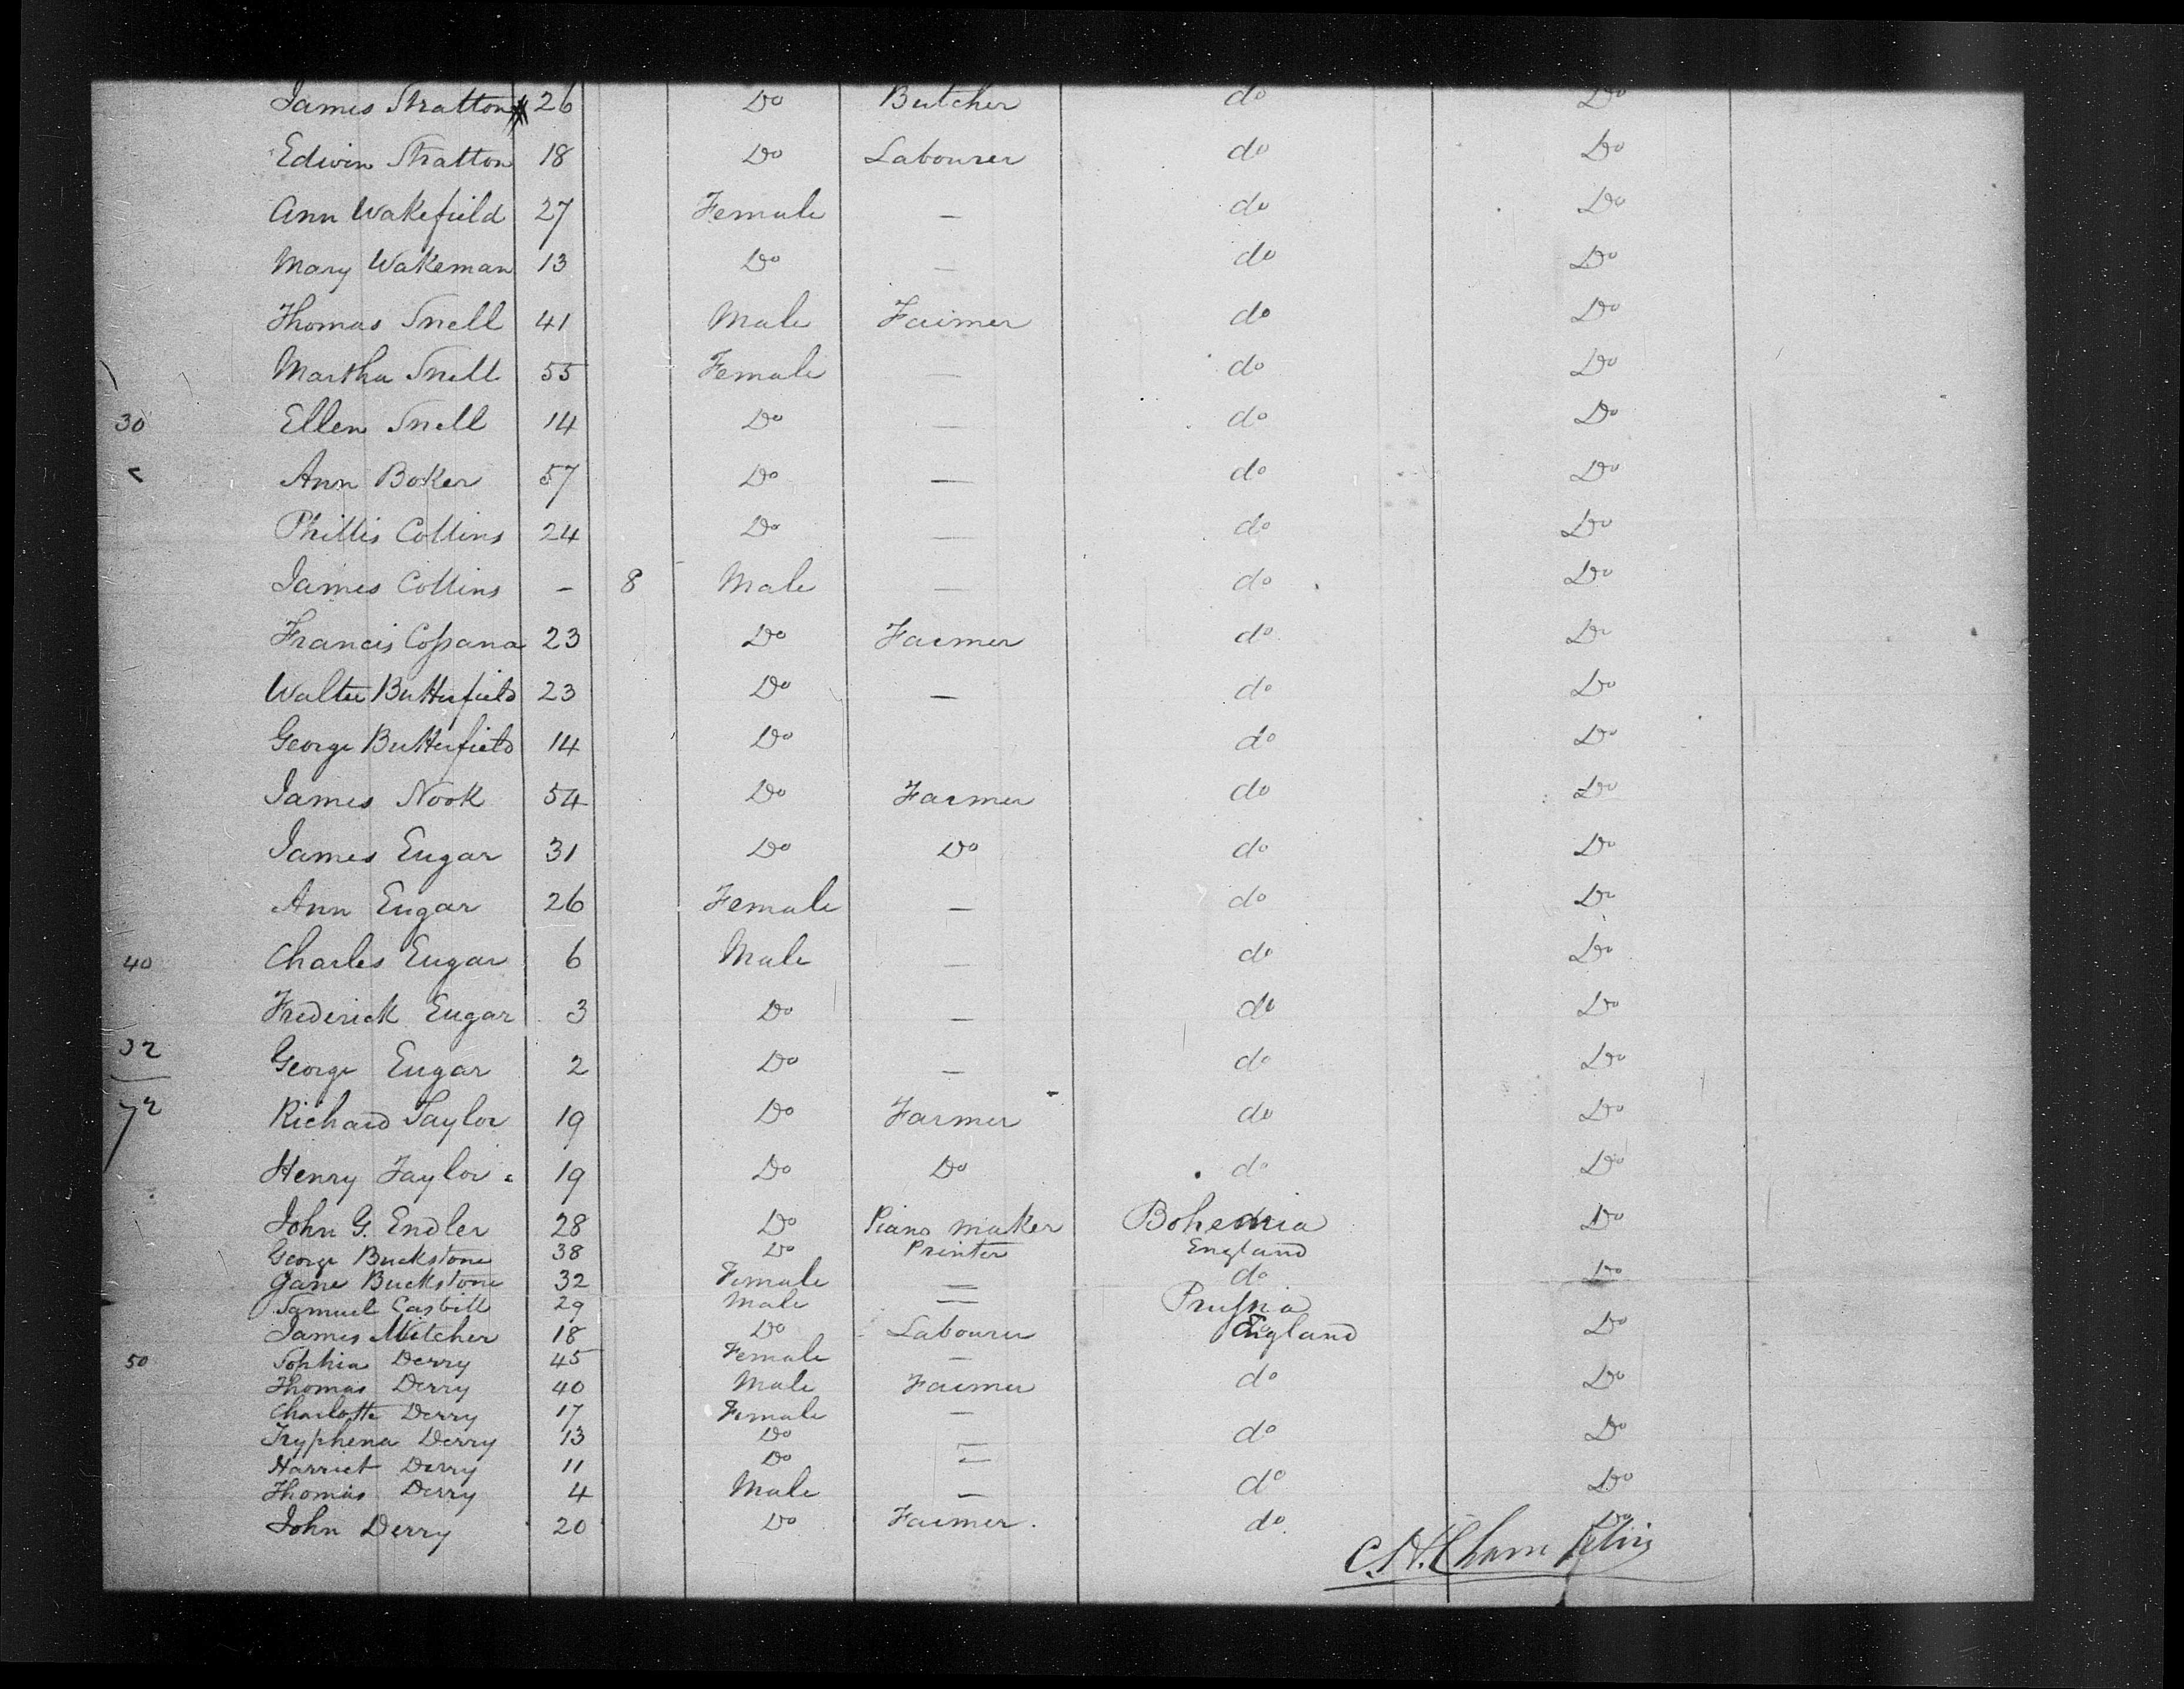 James Stratton 26 Do Butcher do Do
Edwin Stratton 18 Do Labourer do Do
Ann Wakefield 27 Female — do Do
Mary Wakeman 13 Do — do Do
Thomas Snell 41 Male Farmer do Do
Martha Snell 55 Female — do Do
30 Ellen Snell 14 Do — do Do
Ann Boker 57 Do — do Do
Phillis Collins 24 Do — do Do
James Collins – 8 Male — do Do
Francis 23 Do Farmer do Do
Walter Butterfield 23 Do — do Do
George Butterfield 14 Do do Do
James Nook 54 Do Farmer do Do
James Eugar 31 Do Do do Do
Ann Eugar 26 Female — do Do
40 Charles Eugar 6 Male — do Do
Frederick Eugar 3 Do — do Do
32 George Eugar 2 Do — do Do
72 Richard Taylor 19 Do Farmer do Do
Henry Taylor 19 Do Do do Do
John G. Endler 28 Do Piano maker Bohemia Do
George Buckstone 38 Do Printer England
Jane Buckstone 32 Female — do Do
Samuel 29 Male — Prussia
James Mitcher 18 Do Labourer England Do
50 Sophia Derry 45 Female —
Thomas Derry 40 Male Farmer do Do
Charlotte Derry 17 Female —
Tryphena Derry 13 Do — do Do
Harriet Derry 11 Do —
Thomas Derry 4 Male — do Do
John Derry 20 Do Farmer. do. Do
C. H. Champlin